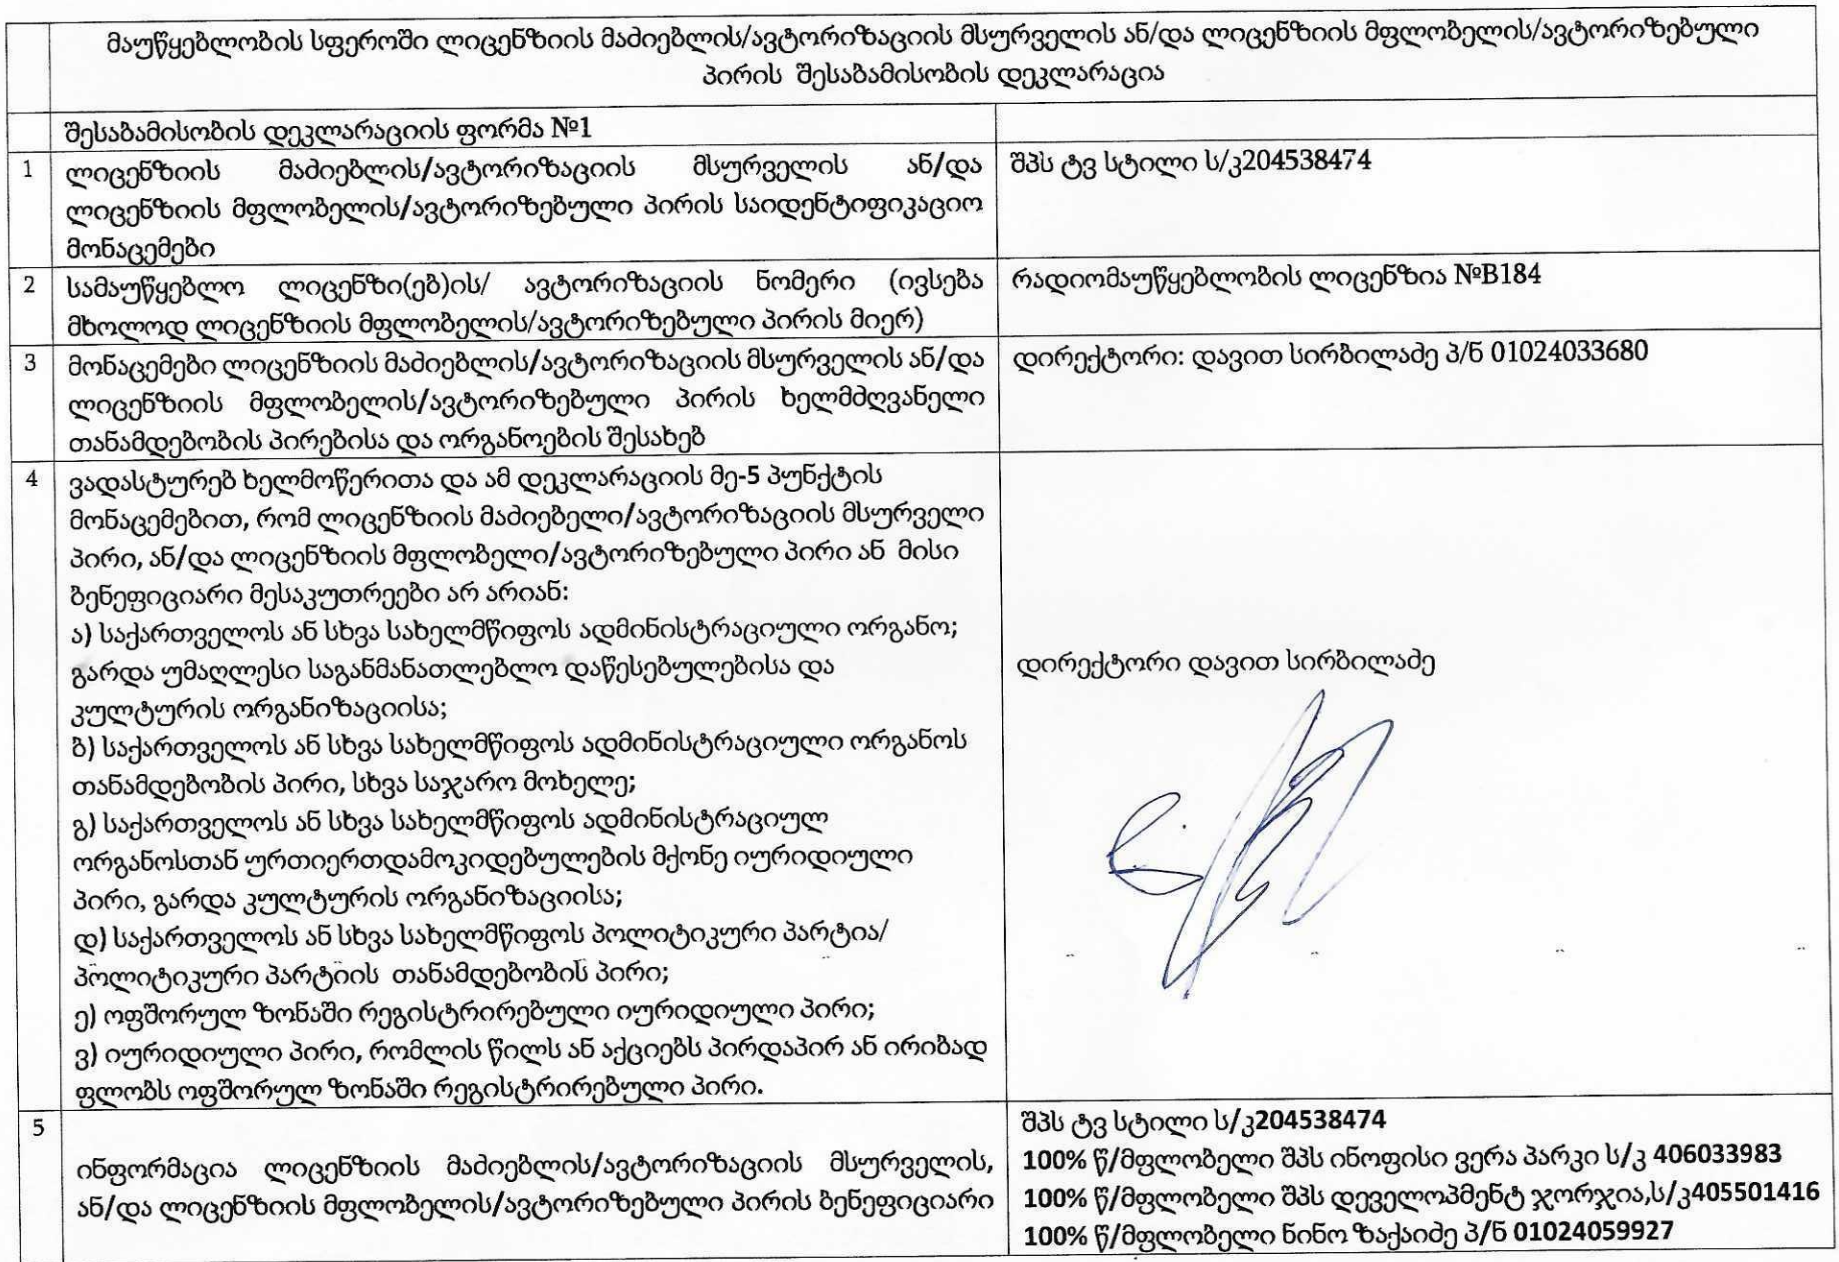 მაუწყებლობის სფეროში ლიცენზიის მაძიებლის/ავტორიზაციის მსურველის ან/და ლიცენზიის მფლობელის/ავტორიზებული
პირის შესაბამისობის დეკლარაცია
შესაბამისობის დეკლარაციის ფორმა №1
1
ლიცენზიის მაძიებლის/ავტორიზაციის მსურველის ან/და
ლიცენზიის მფლობელის/ავტორიზებული პირის საიდენტიფიკაციო
მონაცემები
შპს ტვ სტილი ს/კ204538474
2
სამაუწყებლო ლიცენზი(ებ)ის/ ავტორიზაციის ნომერი (ივსება
მხოლოდ ლიცენზიის მფლობელის/ავტორიზებული პირის მიერ)
რადიომაუწყებლობის ლიცენზია №B184
3
მონაცემები ლიცენზიის მაძიებლის/ავტორიზაციის მსურველის ან/და
ლიცენზიის მფლობელის/ავტორიზებული პირის ხელმძღვანელი
თანამდებობის პირებისა და ორგანოების შესახებ
დირექტორი: დავით სირბილაძე პ/ნ 01024033680
4
ვადასტურებ ხელმოწერითა და ამ დეკლარაციის მე-5 პუნქტის
მონაცემებით, რომ ლიცენზიის მაძიებელი/ავტორიზაციის მსურველი
პირი, ან/და ლიცენზიის მფლობელი/ავტორიზებული პირი ან მისი
ბენეფიციარი მესაკუთრეები არ არიან:
ა) საქართველოს ან სხვა სახელმწიფოს ადმინისტრაციული ორგანო;
გარდა უმაღლესი საგანმანათლებლო დაწესებულებისა და
კულტურის ორგანიზაციისა;
ბ) საქართველოს ან სხვა სახელმწიფოს ადმინისტრაციული ორგანოს
თანამდებობის პირი, სხვა საჯარო მოხელე;
გ) საქართველოს ან სხვა სახელმწიფოს ადმინისტრაციულ
ორგანოსთან ურთიერთდამოკიდებულების მქონე იურიდიული
პირი, გარდა კულტურის ორგანიზაციისა;
დ) საქართველოს ან სხვა სახელმწიფოს პოლიტიკური პარტია/
პოლიტიკური პარტიის თანამდებობის პირი;
ე) ოფშორულ ზონაში რეგისტრირებული იურიდიული პირი;
ვ) იურიდიული პირი, რომლის წილს ან აქციებს პირდაპირ ან ირიბად
ფლობს ოფშორულ ზონაში რეგისტრირებული პირი.
დირექტორი დავით სირბილაძე
5
ინფორმაცია ლიცენზიის მაძიებლის/ავტორიზაციის მსურველის,
ან/და ლიცენზიის მფლობელის/ავტორიზებული პირის ბენეფიციარი
შპს ტვ სტილი ს/კ204538474
100% წ/მფლობელი შპს ინოფისი ვერა პარკი ს/კ 406033983
100% წ/მფლობელი შპს დეველოპმენტ ჯორჯია,ს/კ405501416
100% წ/მფლობელი ნინო ზაქაიძე პ/ნ 01024059927